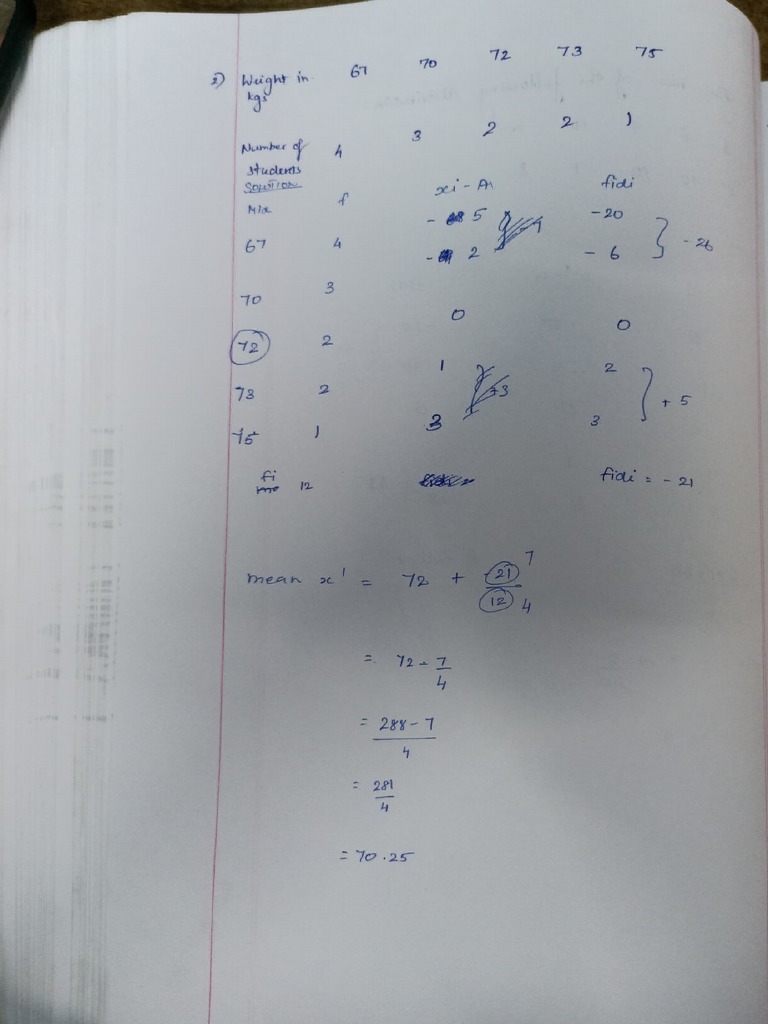 2) Weight in 67 70 72 73 75
kgs
Number of 4 3 2 2 1
students
SOLUTION
f xi - A fidi
67 4 - 5 - 20
- 2 - 6 - 26
70 3
72 2 0 0
73 2 1 2
75 1 3 3 + 5
fi 12 fidi = - 21
mean x' = 72 + -21 7
12 4
= 72 - 7
4
= 288 - 7
4
= 281
4
= 70.25